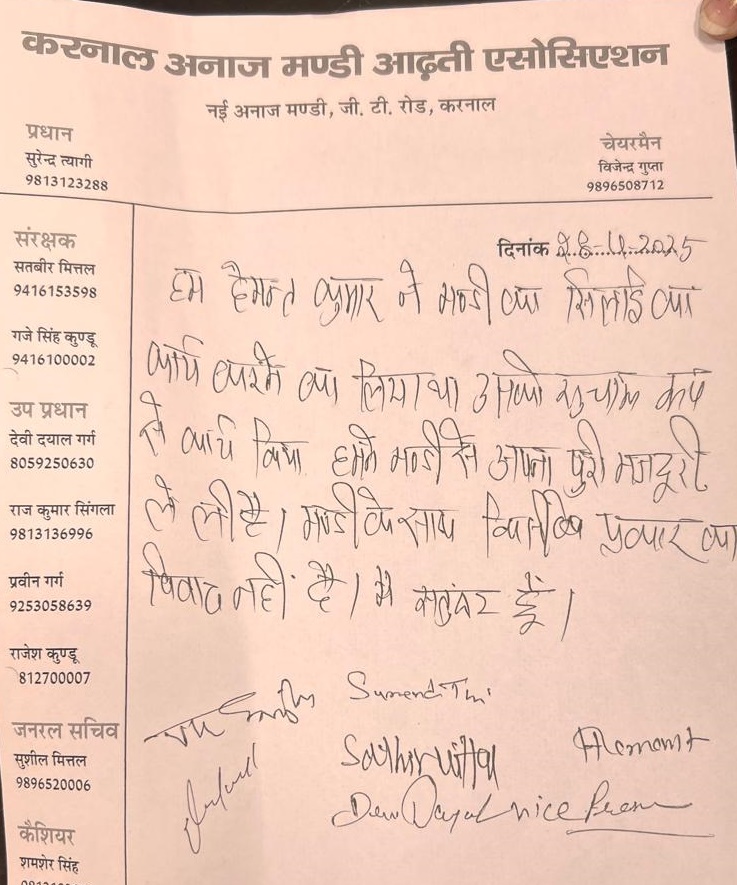 करनाल अनाज मण्डी आढ़ती एसोसिएशन
नई अनाज मण्डी, जी. टी. रोड, करनाल
प्रधान
सुरेन्द्र त्यागी
9813123288
चेयरमैन
विजेन्द्र गुप्ता
9896508712
संरक्षक
सतबीर मित्तल
9416153598
गजे सिंह कुण्डू
9416100002
उप प्रधान
देवी दयाल गर्ग
8059250630
राज कुमार सिंगला
9813136996
प्रवीन गर्ग
9253058639
राजेश कुण्डू
812700007
जनरल सचिव
सुशील मित्तल
9896520006
कैशियर
शमशेर सिंह
दिनांक 2025
हम हेमन्त कुमार ने मण्डी का सिलाई का
कार्य करने का लिया था उसको रूप
से कार्य किया हमने मण्डी से अपना पुरी मजदूरी
ले ली है। मण्डी के साथ किसी प्रकार का
विवाद नहीं है। मैं हूँ।
Hemant
Dew Dayal